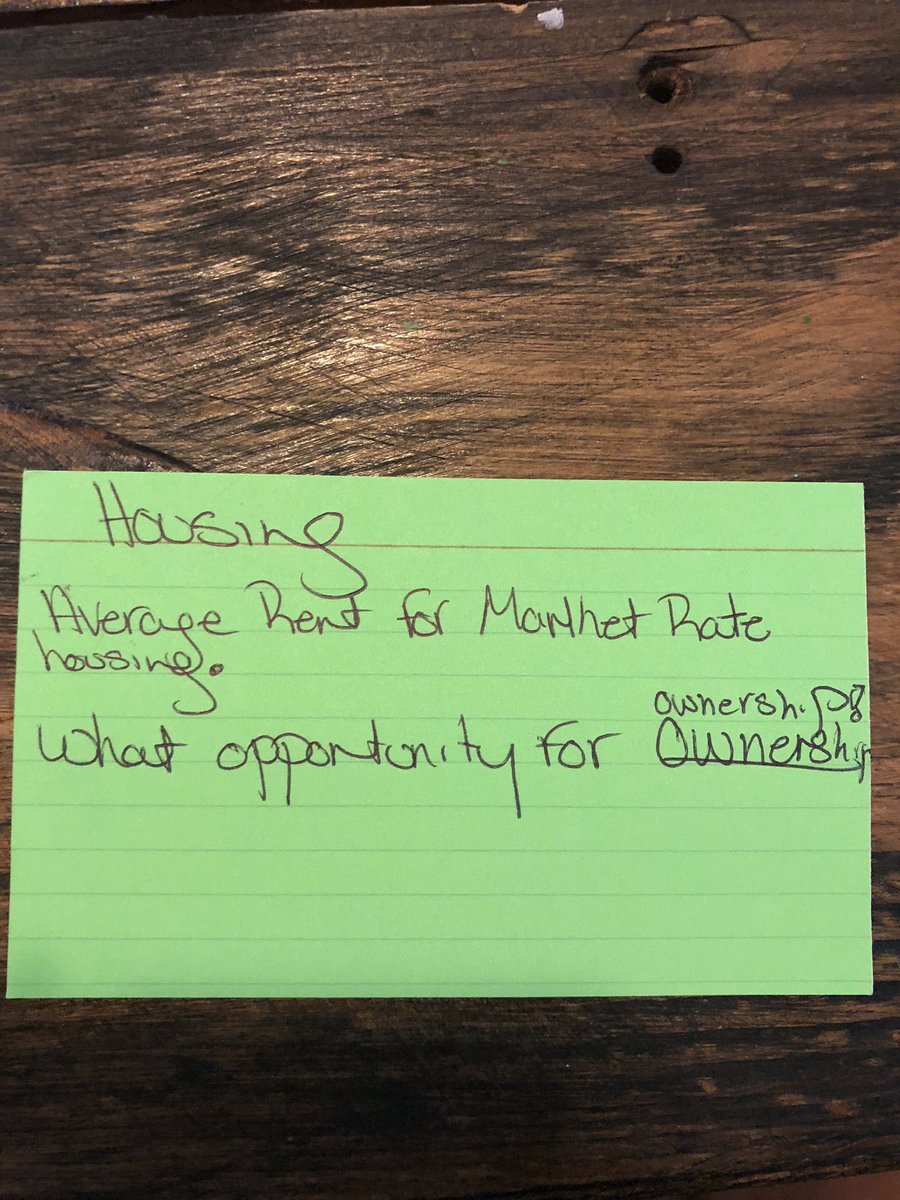 Housing
Average Rent for Market Rate
housing.
ownership?
What opportunity for Ownership